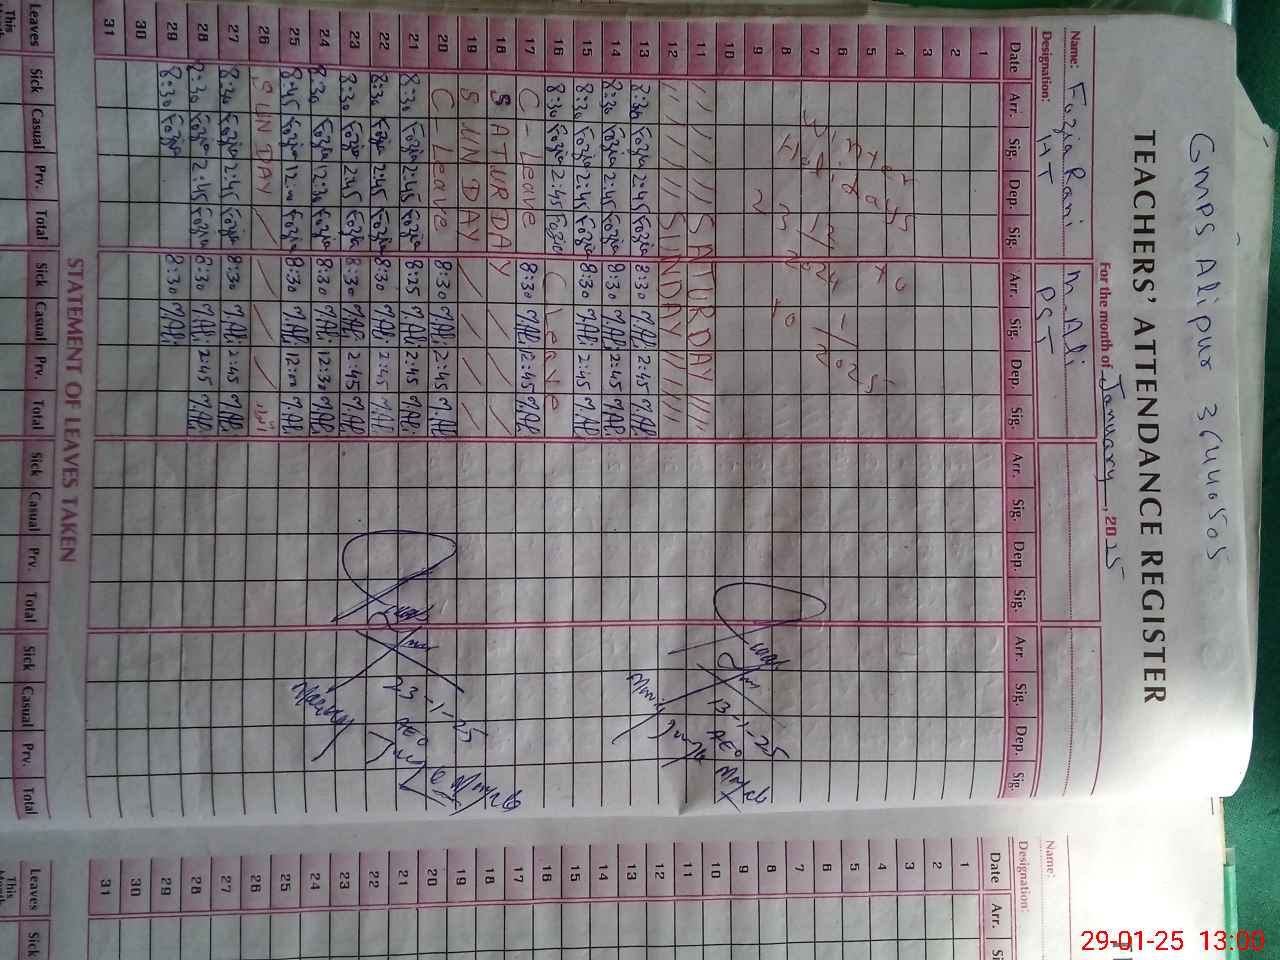 GMPS Alipur 36440505
TEACHERS' ATTENDANCE REGISTER
For the month of January, 2025
Name: Fozia Rani M. Ali
Designation: HT PST
Date Arr. Sig. Dep. Sig. Arr. Sig. Dep. Sig. Arr. Sig. Dep. Sig. Arr. Sig. Dep. Sig.
1
2
3
4
5
6
7
8
9
10
Winter Holidays
23/12/2024 to 10/1/2025
11 // // // SATURDAY // //
12 // // // // SUNDAY // // // //
13 8:30 Fozia 2:45 Fozia 8:30 M.Ali 2:45 M.Ali
14 8:30 Fozia 2:45 Fozia 8:30 M.Ali 2:45 M.Ali
15 8:30 Fozia 2:45 Fozia 8:30 M.Ali 2:45 M.Ali
16 8:30 Fozia 2:45 Fozia C Leave
17 C - Leave 8:30 M.Ali 12:45 M.Ali
18 SATURDAY
19 SUNDAY
20 C - Leave 8:30 M.Ali 2:45 M.Ali
21 8:30 Fozia 2:45 Fozia 8:25 M.Ali 2:45 M.Ali
22 8:30 Fozia 2:45 Fozia 8:30 M.Ali 2:45 M.Ali
23 8:30 Fozia 2:45 Fozia 8:30 M.Ali 2:45 M.Ali
24 8:30 Fozia 12:30 Fozia 8:30 M.Ali 12:30 M.Ali
25 8:45 Fozia 12:00 Fozia 8:30 M.Ali 12:00 M.Ali
26 SUNDAY اتوار
27 8:30 Fozia 2:45 Fozia 8:30 M.Ali 2:45 M.Ali
28 8:30 Fozia 2:45 Fozia 8:30 M.Ali 2:45 M.Ali
29 8:30 Fozia 8:30 M.Ali
30
31
13-1-25
AEO
23-1-25
AEO
STATEMENT OF LEAVES TAKEN
Leaves Sick Casual Prv. Total Sick Casual Prv. Total Sick Casual Prv. Total Sick Casual Prv. Total
This
Name:
Designation:
Date Arr.
1
2
3
4
5
6
7
8
9
10
11
12
13
14
15
16
17
18
19
20
21
22
23
24
25
26
27
28
29
30
31
Leaves Sick
This
29-01-25 13:00